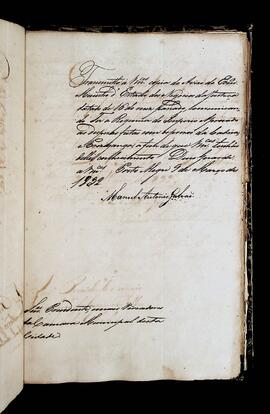 Transmitto a Vmces copia do Aviso do Exmo
Ministro d'Estado dos Negocios da Justiça
datado de 16 do mez findo, communican-
do Ter a Regencia do Imperio Approvado
as despezas feitas com os presos da Cadeia
a fim de que Vmces tenhão
conhecimento. Deos Guarde
a Vmces Porto Alegre 9 de Março de
1832
Manoel Antonio Galvão
Snrs. Presidente, e mais Vereadores
da Camara Municipal desta
Cidade